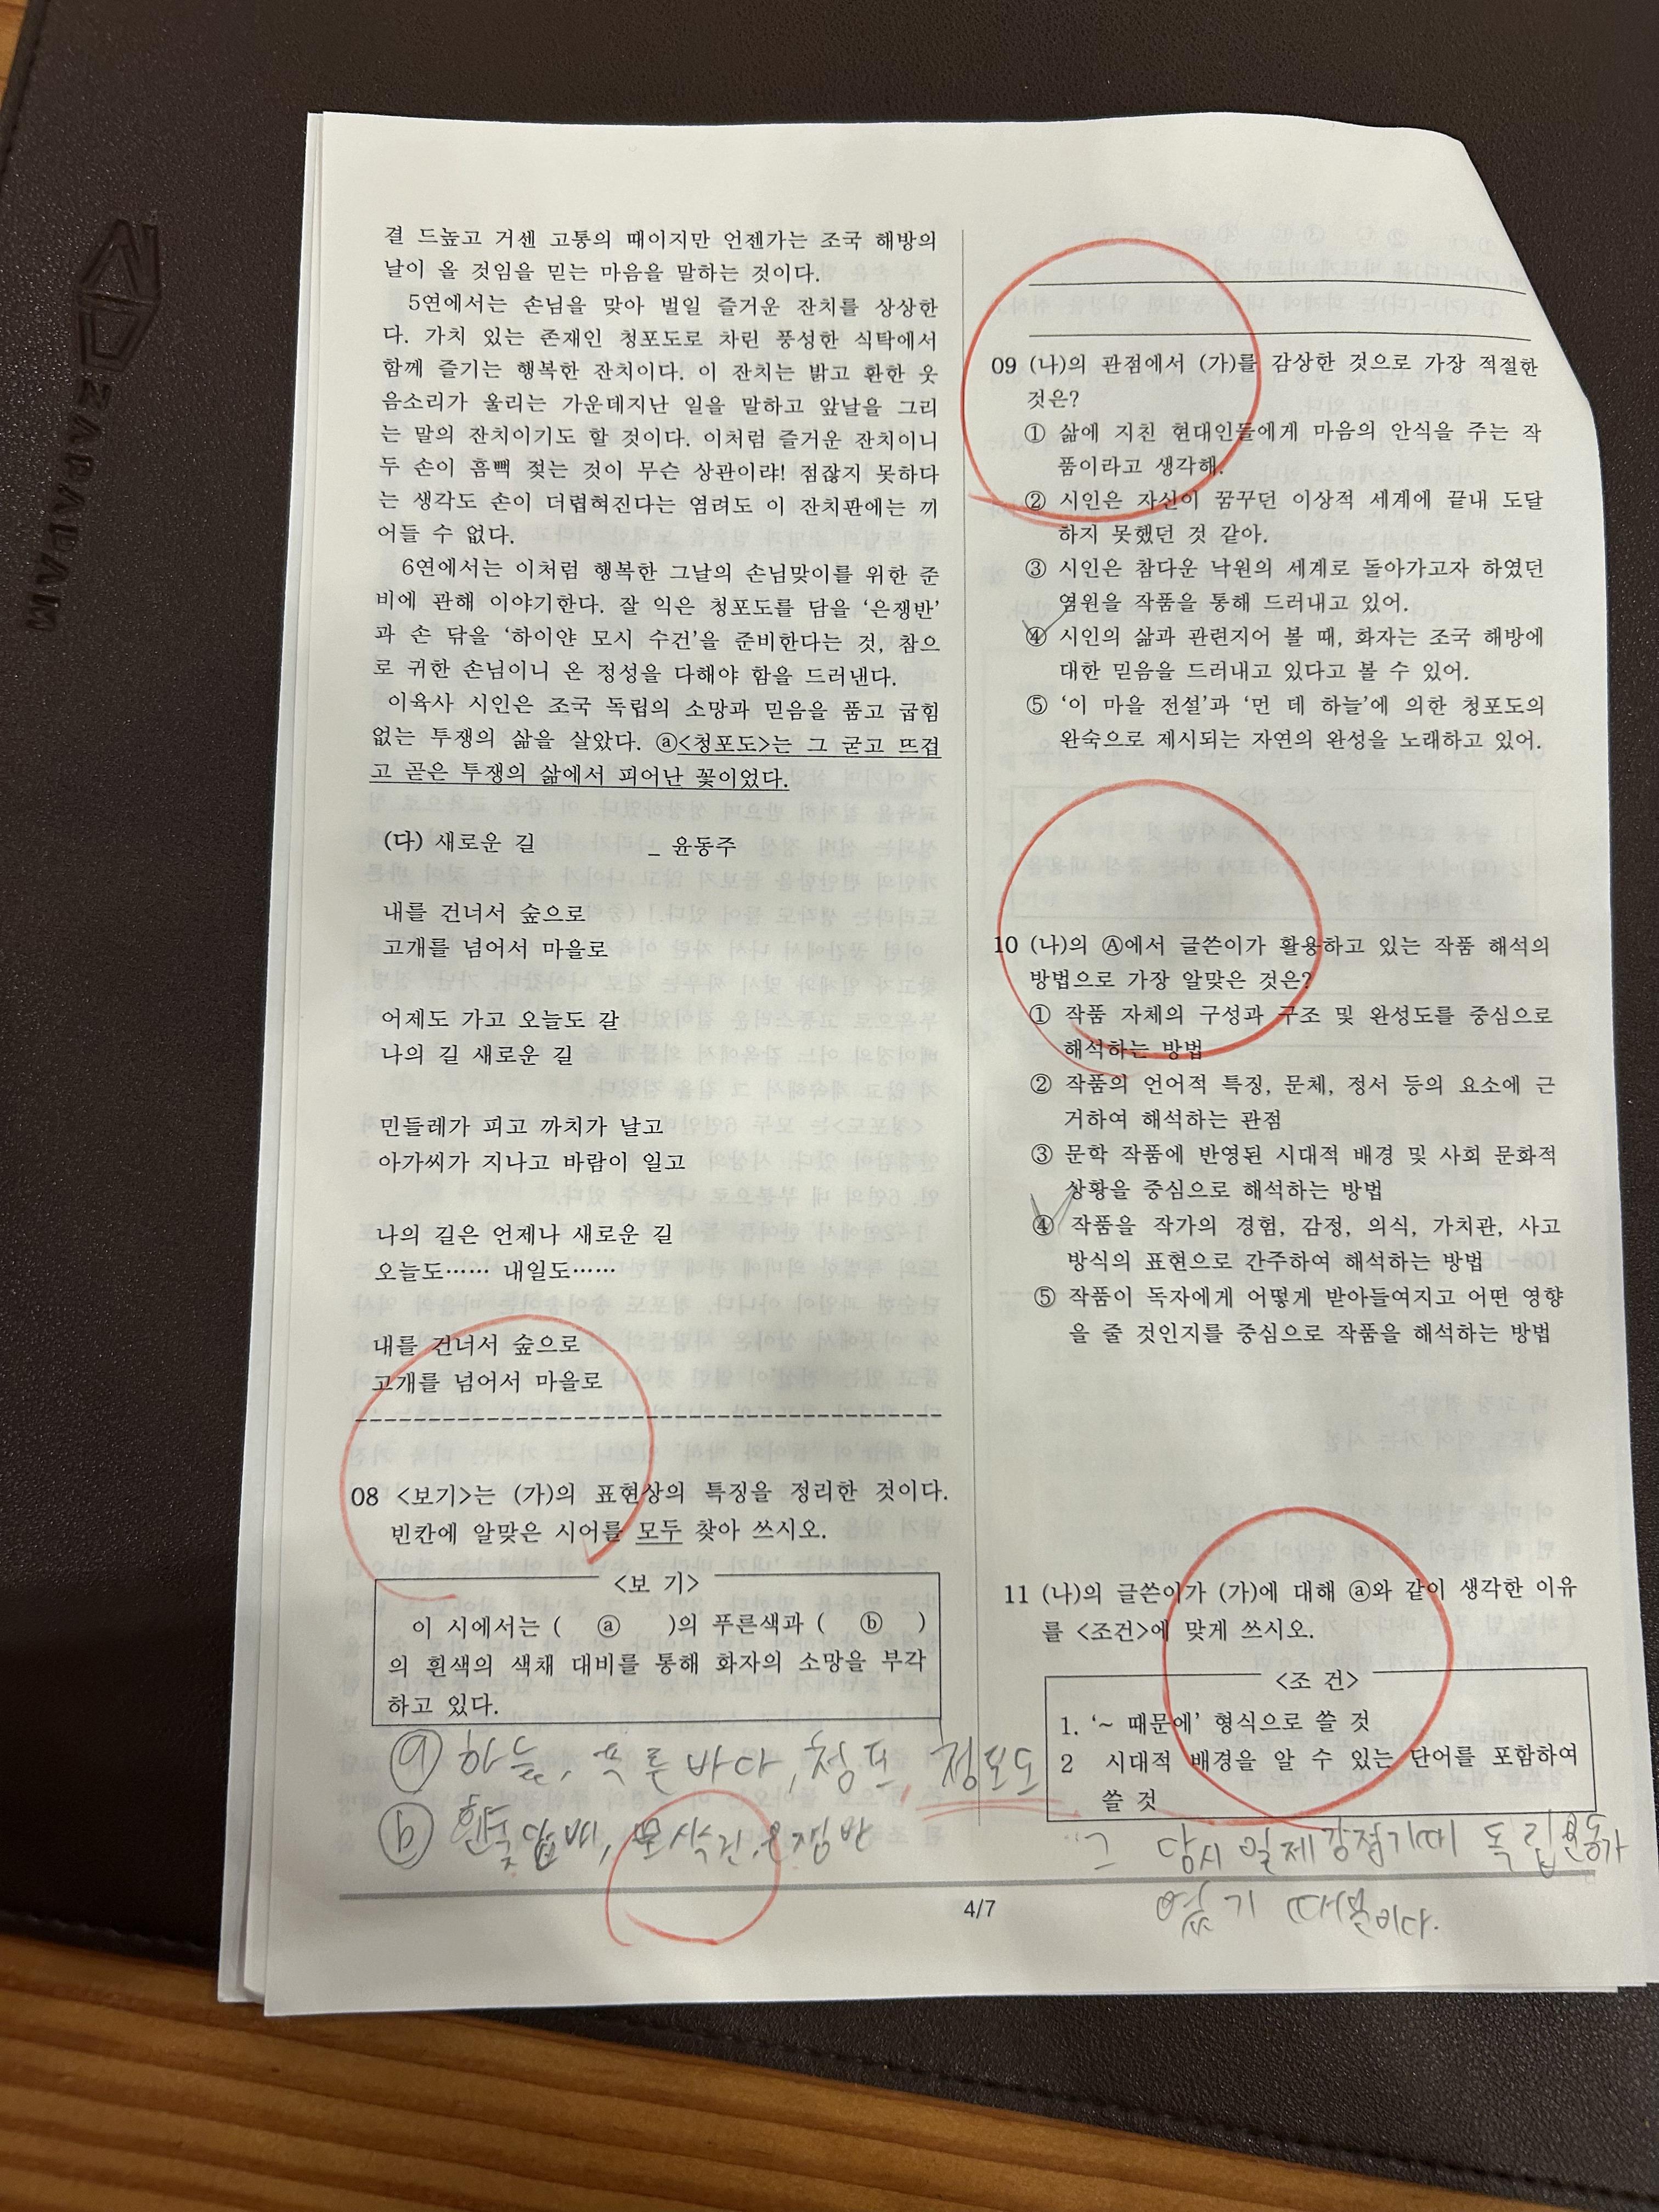 MAPAWAZ
결 드높고 거센 고통의 때이지만 언젠가는 조국 해방의
날이 올 것임을 믿는 마음을 말하는 것이다.
5연에서는 손님을 맞아 벌일 즐거운 잔치를 상상한
다. 가치 있는 존재인 청포도로 차린 풍성한 식탁에서
함께 즐기는 행복한 잔치이다. 이 잔치는 밝고 환한 웃
음소리가 울리는 가운데지난 일을 말하고 앞날을 그리
는 말의 잔치이기도 할 것이다. 이처럼 즐거운 잔치이니
두 손이 흠뻑 젖는 것이 무슨 상관이랴! 점잖지 못하다
는 생각도 손이 더럽혀진다는 염려도 이 잔치판에는 끼
어들 수 없다.
6연에서는 이처럼 행복한 그날의 손님맞이를 위한 준
비에 관해 이야기한다. 잘 익은 청포도를 담을 ‘은쟁반’
과 손 닦을 ‘하이얀 모시 수건’을 준비한다는 것, 참으
로 귀한 손님이니 온 정성을 다해야 함을 드러낸다.
이육사 시인은 조국 독립의 소망과 믿음을 품고 굽힘
없는 투쟁의 삶을 살았다. ⓐ<청포도>는 그 굳고 뜨겁
고 곧은 투쟁의 삶에서 피어난 꽃이었다.
(다) 새로운 길 _ 윤동주
내를 건너서 숲으로
고개를 넘어서 마을로
어제도 가고 오늘도 갈
나의 길 새로운 길
민들레가 피고 까치가 날고
아가씨가 지나고 바람이 일고
나의 길은 언제나 새로운 길
오늘도…… 내일도……
내를 건너서 숲으로
고개를 넘어서 마을로
08 <보기>는 (가)의 표현상의 특징을 정리한 것이다.
빈칸에 알맞은 시어를 모두 찾아 쓰시오.
<보 기>
이 시에서는 ( ⓐ )의 푸른색과 ( ⓑ )
의 흰색의 색채 대비를 통해 화자의 소망을 부각
하고 있다.
ⓐ 하늘, 푸른 바다, 청포, 청포도
흰 돛단배, 모시수건, 은쟁반
09 (나)의 관점에서 (가)를 감상한 것으로 가장 적절한
것은?
① 삶에 지친 현대인들에게 마음의 안식을 주는 작
품이라고 생각해.
② 시인은 자신이 꿈꾸던 이상적 세계에 끝내 도달
하지 못했던 것 같아.
③ 시인은 참다운 낙원의 세계로 돌아가고자 하였던
염원을 작품을 통해 드러내고 있어.
④ 시인의 삶과 관련지어 볼 때, 화자는 조국 해방에
대한 믿음을 드러내고 있다고 볼 수 있어.
⑤ ‘이 마을 전설’과 ‘먼 데 하늘’에 의한 청포도의
완숙으로 제시되는 자연의 완성을 노래하고 있어.
10 (나)의 Ⓐ에서 글쓴이가 활용하고 있는 작품 해석의
방법으로 가장 알맞은 것은?
① 작품 자체의 구성과 구조 및 완성도를 중심으로
해석하는 방법
② 작품의 언어적 특징, 문체, 정서 등의 요소에 근
거하여 해석하는 관점
③ 문학 작품에 반영된 시대적 배경 및 사회 문화적
상황을 중심으로 해석하는 방법
④ 작품을 작가의 경험, 감정, 의식, 가치관, 사고
방식의 표현으로 간주하여 해석하는 방법
⑤ 작품이 독자에게 어떻게 받아들여지고 어떤 영향
을 줄 것인지를 중심으로 작품을 해석하는 방법
11 (나)의 글쓴이가 (가)에 대해 ⓐ와 같이 생각한 이유
를 <조건>에 맞게 쓰시오.
<조 건>
1. ‘~ 때문에’ 형식으로 쓸 것
2 시대적 배경을 알 수 있는 단어를 포함하여
쓸 것
그 당시 일제강점기때 독립운동가
였기 때문이다.
4/7